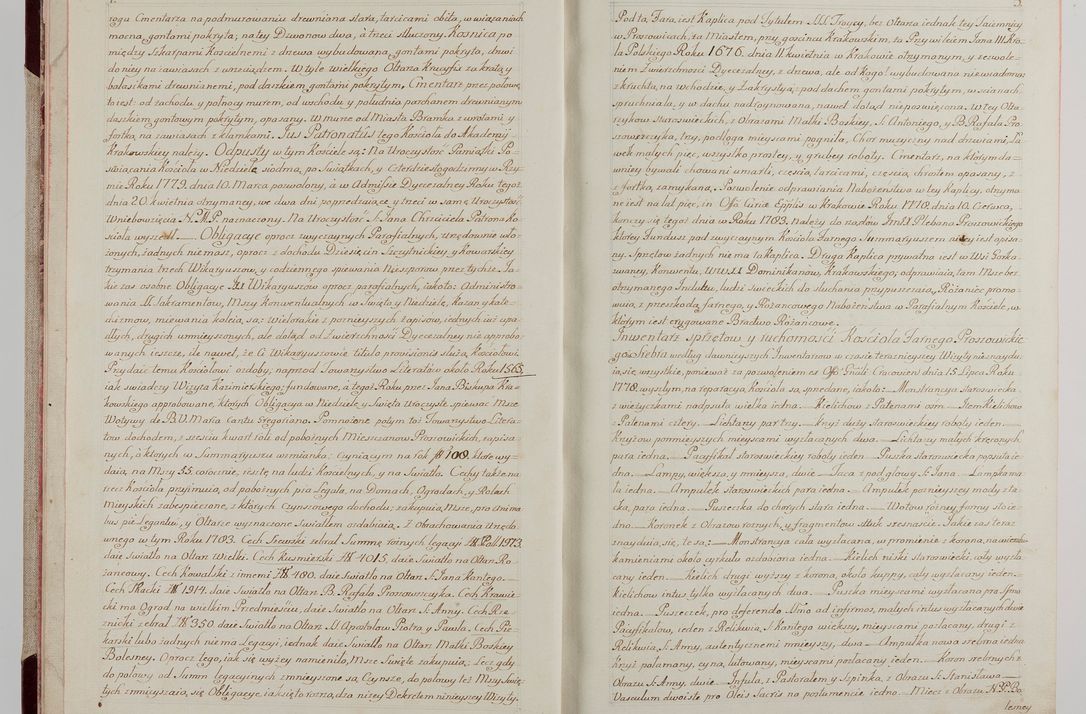 roga Cmentarza na podmurowaniu drewniana stara, tarcicami obita, w wiązaniach
mocna, gontami pokryta, na tey Dzwonow dwa, a trzeci stłuczony. Kosnica po
między Szkarpami Koscielnemi z drzewa wybudowana, gontami pokryta, drzwi
do niey na zawiasach z wrzeciądzem. W tyle wielkiego Ołtarza Krucyfix za kratą y
balasikami drewnianemi, pod daszkiem gontami pokrytym. Cmentarz przez połowę
to iest od zachodu y pułnocy murem, od wschodu y południa parchanem drewnianym
daszkiem gontowym pokrytym, opasany. W murze od Miasta Bramka z wrotami y
fortka, na zawiasach z klamkami. Jus Patronatûs tego Kościoła do Akademij
Krakowskiey należy. Odpusty w tym Kościele są: Na Uroczystość Pamiątki Po=
święcania Kościoła w Niedzielę siodmą, po Swiątkach, y Czterdziestogodzinny w Rzy=
mie Roku 1779. dnia 10. Marca pozwolony, a w Admissie Dyecezalney Roku tegoż
dnia 20. kwietnia otrzymany, we dwa dni poprzedzaiące y trzeci w samę Uroczystość
Wniebowzięcia N. M. P. naznaczony. Na Uroczystość S. Jana Chrzciciela Patrona Ko=
ścioła wyszedł. Obligacye oprocz zwyczaynych Parafialnych, urzędownie wło=
żonych, żadnych nie masz, oprocz z dochodu Dziesięcin Szczytnickiey y Kowarskiey
trzymania trzech Wikaryuszow, y codziennego spiewania Nieszporow przez tychże. Ja=
kie zas osobne Obligacye Ju Wikaryuszow oprocz parafialnych, iakoto: Administro=
wania SS. Sakramentow, Mszy Konwentualnych w Święta y Niedziele, Kazan y kate=
chizmow, miewania koleią, są: wielorakie z poznieyszych zapisow, iednych iuż upa=
dłych, drugich umnieyszonych, ale dotąd od Zwierzchności Dyecezalney nie approbo=
wanych ieszcze, ile nawet, że Ci Wikaryuszowie titulo provisionis służą Kościołowi.
Przydaie temu Kościołowi ozdoby, naprzod Towarzystwo Literatow około Roku 1563.
iak świadczy Wizyta Kazimierskiego, fundowane, a tegoż Roku przez Jana Biskupa Kra=
kowskiego approbowane, ktorych Obligacya w Niedziele y Swięta Uroczyste spiewać Msze
Wotywy de B. V. Maria Cantu Gregoriano. Pomnożone potym to Towarzystwo Litera=
tow dochodem, z szesciu kwart roli od pobożnych Mieszczanow Proszowickich, zapisa=
nych, o ktorych w Summaryuszu wzmianka, czyniącym na rok # 108. ktore wy=
daią na Mszy 55. corocznie, resztę na ludzi Kościelnych, y na Swiatło. Cechy także na
rzecz Kościoła przyimuią, od pobożnych pia Legata, na Domach, Ogrodach, y Rolach
Mieyskich zabespieczone, z ktorych czynszowego dochodu, zakupuią Msze, pro animabus
bus pie Legantiu, y Ołtarze wyznaczone Swiatłem ozdabiaią. Z Obrachowania urzędo=
wnego w tym Roku 1783. Cech Szewski zebrał Summę roznych legacyi # Poll 1973.
daie swiatło na Ołtarz Wielki. Cech Kusmierski # 4015, daie Swiatło na Ołtarz Ro=
żancowy. Cech Kowalski z innemi # 480. daie Swiatło na Ołtarz S. Jana Kantego.
Cech Tkacki # 1914. daie Swiatło na Ołtarz B. Rafała Proszowczyka. Cech Krawie=
cki ma Ogrod na wielkim Przedmieściu, daie Swiatło na Ołtarz S. Anny. Cech Rze=
znicki zebrał # 350 daie Swiatło na Ołtarz SS Apostołow Piotra, y Pawła. Cech Pie=
karski lubo żadnych nie ma Legacyi, iednak daie Swiatło na Ołtarz Matki Boskiey
Bolesney. Oprocz tego, iak się wyżey namieniło, Msze Swięte zakupuią; Lecz gdy
do połowy od Summ legacyinych zmnieyszone są Czynsze, do połowy też Mszy Swię=
tych zmnieyszaią się Obligacye ia kięto korzą, dza niżey Dekretem ninieyszey Wizyty.
3.
Pod tą Farą iest Kaplica pod Tytułem SS Troycy, bez Ołtarza iednak tey Taiemnicy
w Proszowicach, za Miastem, przy goscincu Krakowskim, za Przywileiem Jana III. Kro=
la Polskiego Roku 1676. dnia 11. kwietnia w Krakowie otrzymanym, y zezwole=
niem Zwierzchności Dyecezalney, z drzewa, ale od kogo? wybudowana niewiadomo;
z kruchtą, na wschodzie, y Zakrystyą; pod dachem gontami pokrytym, w scianach
spruchniała, y w dachu nadrujnowana, nawet dotąd nieposwięcona. W tey Ołta=
rzykow staroswieckich, z Obrazami Matki Boskiey, S. Antoniego, y B. Rafała Pro=
szowczyka, trzy, podłoga mieyscami pogniła, Chor muzyczny nad drzwiami, Ła=
wek małych pięc, wszystko prostey, y grubey roboty. Cmentarz, na ktorym da=
wniey bywali chowani umarli, częścią, tarcicami, częścią, chrostem opasany, z=
z fortką, zamykaną. Pozwolenie odprawiania Nabożeństwa w tey Kaplicy, otrzyma=
ne iest na lat pięć, in Offo Curiæ Epplis w Krakowie Roku 1778. dnia 10. Czerwca,
kończy się tegoż dnia w Roku 1783. Należy do rządow JmX. Plebana Proszowskiego
ktorey Fundusz pod zwyczaynym Kościoła Farnego Summaryuszem niżey iest opisa=
ny. Sprzętow żadnych nie ma ta Kaplica. Druga Kaplica prywatna iest w Wsi Gorka
zwaney, Konwentu, WWXX Dominikanow, Krakowskiego; odprawiaią, tam Msze bez
otrzymanego Indultu, ludzi swieckich do słuchania przypuszczaią, Rożaniec promo=
wuią, z przeszkodą farnego, y Rożancowego Nabożeństwa w Parafialnym Kościele, w
ktorym iest erygowane Bractwo Rożancowe.
Inwentarz sprzętow y ruchomości Kościoła Farnego Proszowickie=
go. Srebra według dawnieyszych Inwentarzow w czasie teraznieyszey Wizyty nieznaydu=
ią się, wszystkie, ponieważ za pozwoleniem ex Offo Gnāli Cracovien dnia 15 Lipca Roku
1778. wyszłym, na reparacyą Kościoła są, sprzedane, iakoto: Monstrancya staroswiecka
z wieżyczkami nadpsuta wielka iedna. Kielichow z Patenami osm. Item Kielichow
z Patenami cztery. Lichtarzy par trzy. Krzyż duży staroswieckiey roboty ieden.
Krzyżow pomnieyszych mieyscami wyzłacanych dwa. Lichtarzy małych kręconych
para iedna. Pacyfikał staroswieckiey roboty ieden. Puszka staroswiecka popsuta ie=
dna. Lampy, większa, y mnieysza, dwie. Taca, pod głowy S. Jana. Lampka ma=
ła iedna. Ampułek staroswieckich para iedna. Ampułek poznieyszey mody z ta=
cką, para iedna. Puszeczka do chorych stara iedna. Wotow rożney formy stoie=
dno. Koronek z Obrazow roznych, y fragmentow sztuk szesnascie. Jakie zas teraz
znayduią się, te są: Monstrancya cała wyzłacana, w promienie z koroną, na wierzchu
kamieniami około cyrkułu ozdobiona iedna. Kielich niski staroswiecki, cały wyzła=
cany ieden. Kielich drugi wyższy z koroną, około kuppy, cały wyzłacany ieden.
Kielichow intus tylko wyzłacanych dwa. Puszka mieyscami wyzłacana pro Ssmo
iedna. Puszeczek, pro deferendo Ssmo ad infirmos, małych intus wyzłacanych dwie.
Pacyfikałow, ieden z Relikwią, S. Kantego większy, mieyscami pozłacany, drugi z
Relikwią, S. Anny, autentycznemi mnieyszy, dwa. Ampułka nowa srebrna iedna
Krzyż połamany, cyną, lutowany, mieyscami pozłacany ieden. Koron srebrnych z
Obrazu S. Anny, dwie. Infuła, z Pastorałem, y Szpinka, z Obrazu S. Stanisława.
Vasculum dwoiste pro Oleis Sacris na postumencie iedno. Miecz z Obrazu N. P. Bo=
lesney